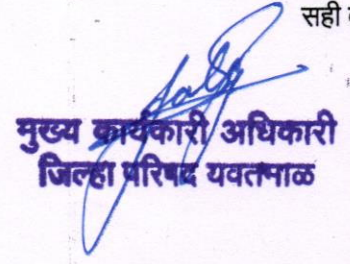 सही
मुख्य कार्यकारी अधिकारी
जिल्हा परिषद यवतमाळ